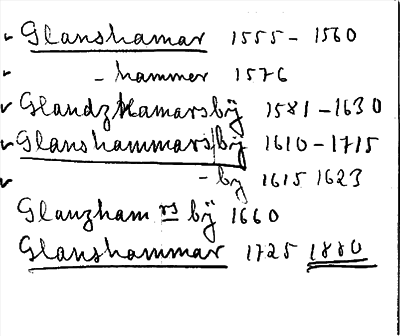 Glanshamar 1555 - 1560
- hammer 1576
Glandz Hamarsbÿ 1581 - 1630
Glanshammars/bÿ 1610 - 1715
- by 1615 1623
Glanzham rs bÿ 1660
Glanshammar 1725 1880